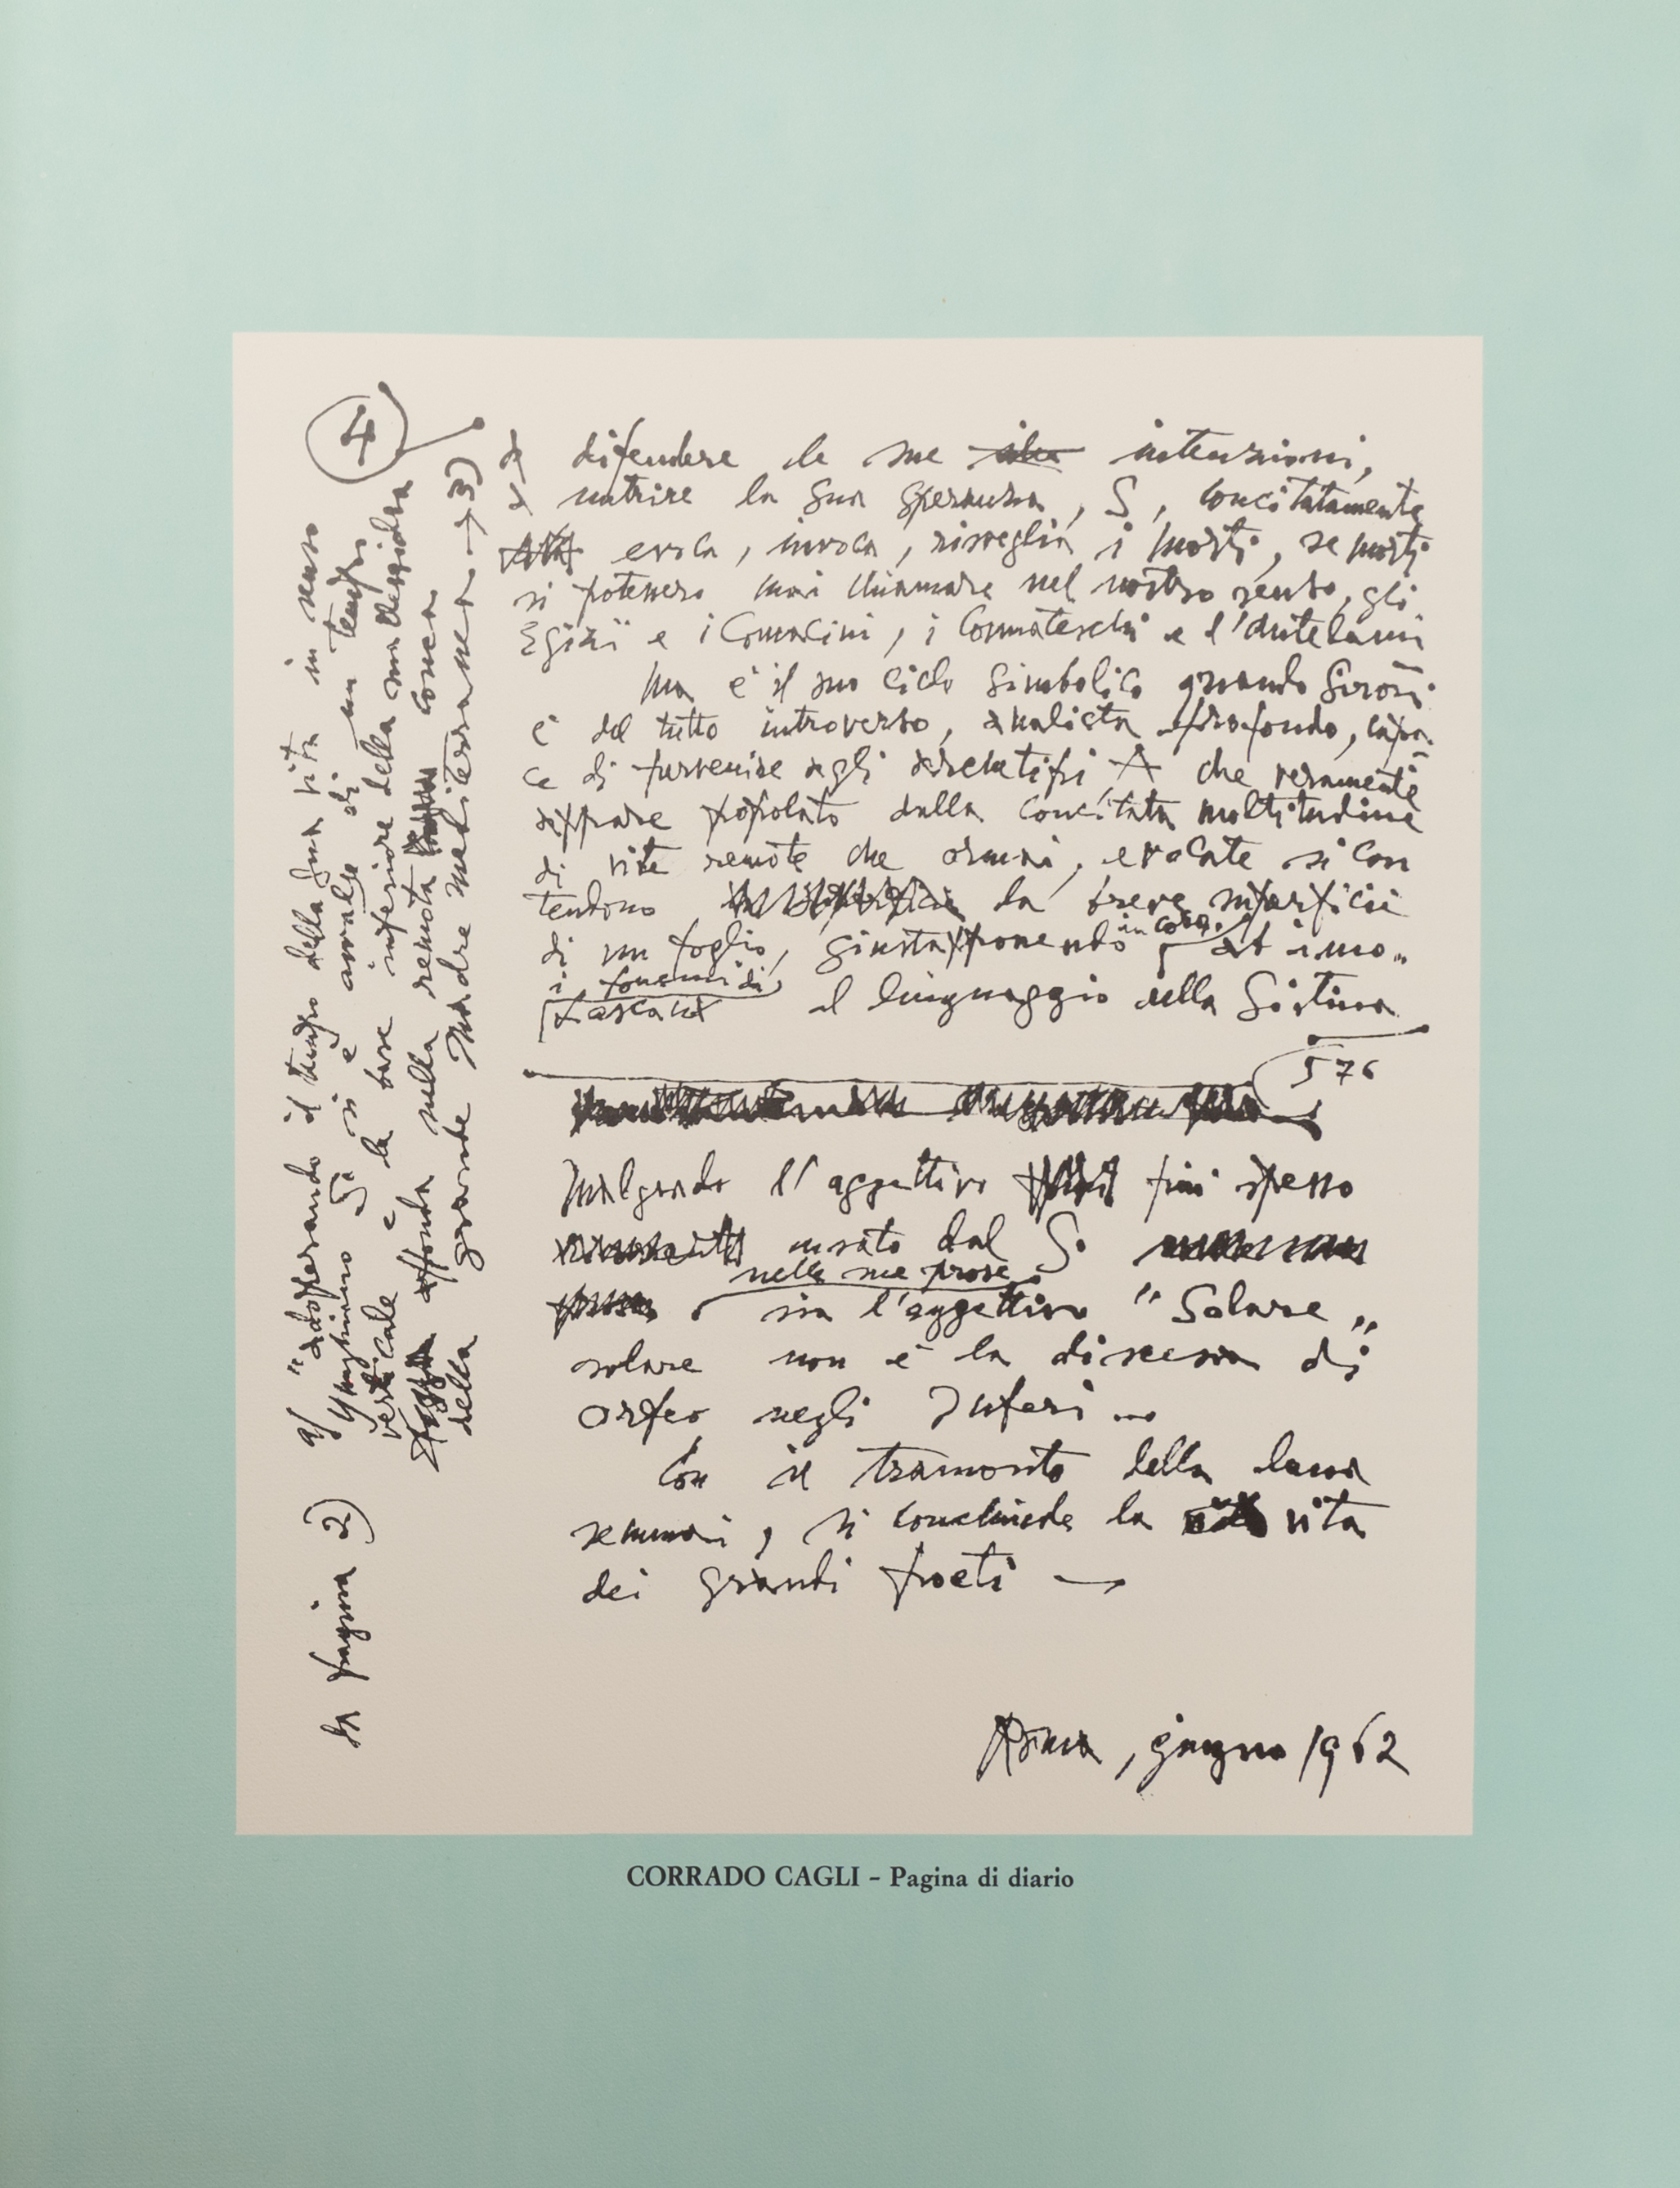 4
a difendere le sue intenzioni,
a nutrire la sua speranza, S, concitatamente
evoca, invoca, risveglia i morti, se morti
si potessero mai chiamare nel nostro senso, gli
Egizii e i Comacini, i Cosmateschi e l'Antelami
Ma è il suo ciclo simbolico quando Sironi
è del tutto introverso, analista profondo, capa-
ce di pervenire agli archetipi, che veramente
appare popolato dalla concitata moltitudine
di vite remote che ormai, evocate si con
tendono la breve superficie
di un foglio, giustapponendo in
i fonemi di
Lascaux il linguaggio della Sistina
576
Malgrado l'aggettivo più spesso
usato dal S.
nelle sue prose
sia l'aggettivo "Solare"
solare non è la discesa di
Orfeo negli Inferi ...
Con il tramonto della luna
semmai, si conchiude la vita
dei grandi poeti
Roma, giugno 1962
da pagina 2)
a/ "adoperando il tempo della sua vita in senso
verticale e la base inferiore della sua clessidra
affonda nella remota conca
della grande Madre mediterranea → 3)
CORRADO CAGLI - Pagina di diario